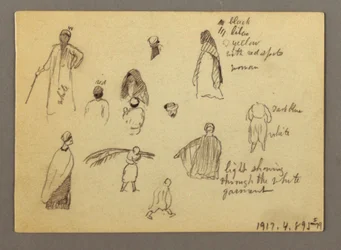 black
blue
yellow
with red spots
woman
red
white
dark blue
white
light showing
through the white
garment
1917.4.895